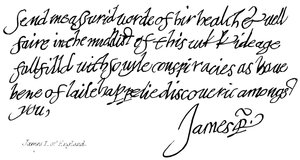 Send me assurid worde of hir health & well
faire in the middest of this wikkid eage
fulfilld with so vyle conspiracies as haue
bene of laite happelie discouerie amongst
you,
James R.
James I. of England.